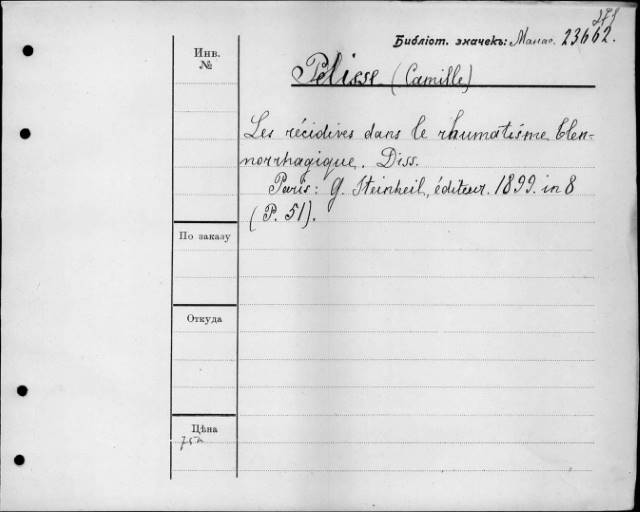 Библіот. значекъ: 23662.
Инв.
№
Pelisse (Camille)
Les récidives dans le rhumatisme blen-
norrhagique. Diss.
Paris: G. Steinheil, éditeur. 1899. in 8
(P. 51).
По заказу
Откуда
Цѣна